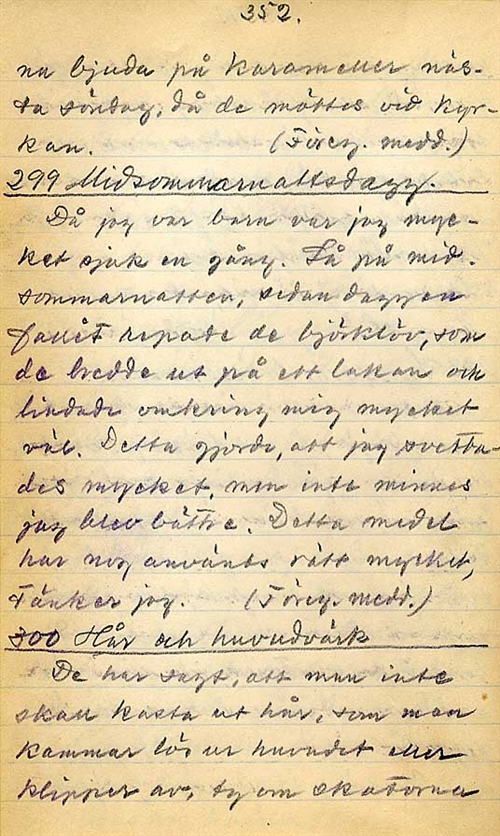 352.
na bjuda på karameller näs-
ta söndag, då de möttes vid kyr-
kan. (Föreg. medd.)
299 Midsommarnattsdagg.
Då jag var barn var jag myc-
ket sjuk en gång. Så på mid-
sommarnatten, sedan daggen
fallit repade de björklöv, som
de bredde ut på ett lakan och
lindade omkring mig mycket
väl. Detta gjorde, att jag svetta-
des mycket, men inte minnes
jag blev bättre. Detta medel
har nog använts rätt mycket,
tänker jag. (Föreg. medd.)
300 Hår och huvudvärk
De har sagt, att man inte
skall kasta ut hår, som man
kammar lös ur huvudet eller
klipper av, ty om skatorna